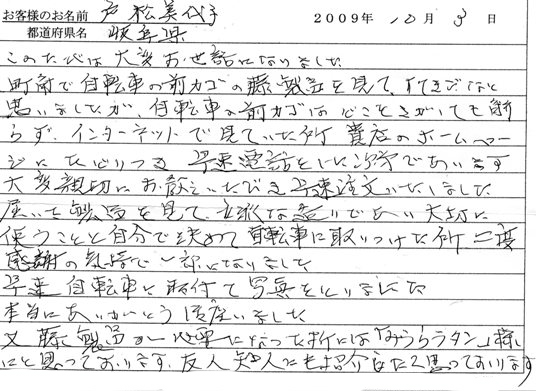 お客様のお名前 戸松美代子 2009年 10月 3日
都道府県名 岐阜県
このたびは大変お世話になりました
町角で自転車の前カゴの藤製品を見て、すてきだなと
思いましたが、自転車の前カゴはどこをさがしても
らず、インターネットで見ていた所 貴店のホームペー
ジにたどりつき 早速電話をした次第であります
大変親切にお教えいただき 早速注文いたしました
届いた製品を見て、立派な造りで 大切に
使うことと自分で決めて 自転車に取りつけた所 二度
感謝の気持で一杯になりました
早速 自転車に取付て写真をとりました
本当にありがとう御座いました
又 藤製品が必要になった折には「みうらラタン」様
にと思っております。友人知人にも紹介したく思っております